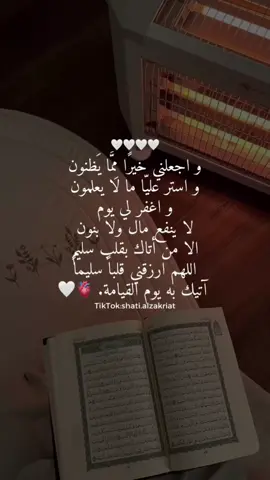 🤍🤍🤍🤍
و اجعلني خيرًا مِمَّا يَظنون
و استر عليا ما لا يعلمون
و اغفر لي يوم
لا ينفع مال ولا بنون
الا من أتاك بقلب سليم
اللهم ارزقني قلباً سليماً
آتيك به يوم القيامة. 🫀🤍
TikTok:shati.alzakriat